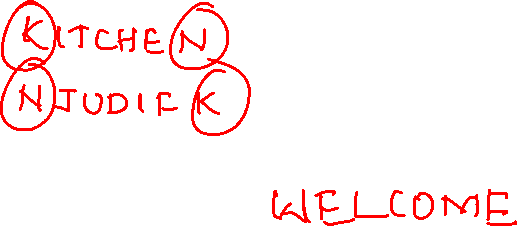 KITCHEN
NJUDIFK
WELCOME